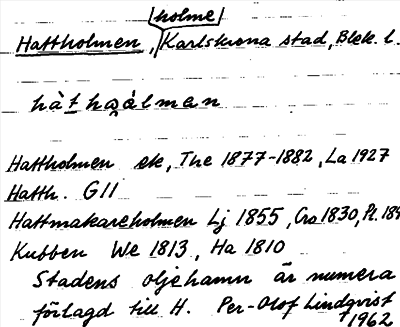 holme
Hattholmen, Karlskrona stad, Blek. l.
hàt̲ hɷ̀lman
Hattholmen ek, The 1877-1882, La 1927
Hatth. G11
Hattmakareholmen Lj 1855, Cro 1830, Pt. 184
Kubben We 1813, Ha 1810
Stadens oljehamn är numera
förlagd till H. Per-Olof Lindqvist
1962